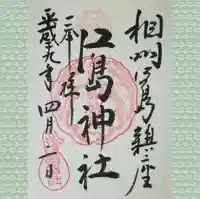 相州江ノ島鎮座
江島神社
奉拝
平成十九年四月二日